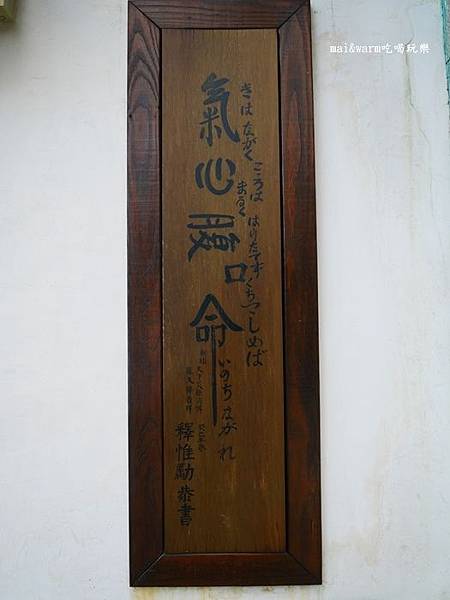 mai&warm吃喝玩樂
氣心腹口命
きは ながく
こころは まるく
はらたてず
くちつつしめば
いのち ながかれ
釋惟勵恭書